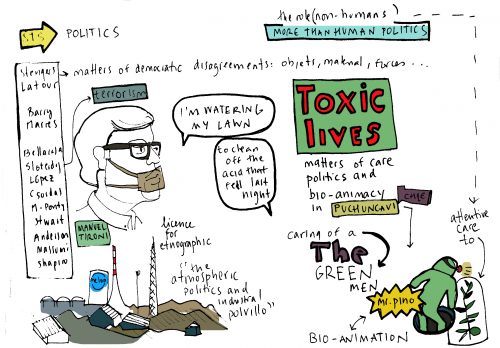 STS
POLITICS
the role (non-humans)
MORE THAN HUMAN POLITICS
Stengers
Latour
Barry
Marres
Bellacasa
Sloterdij
López
Csordas
M. Ponty
Stwart
Anderson
Massumi
Shapiro
matters of democratic disagreements: objets, material, forces...
terrorism
I'M WATERING
MY LAWN
to clean
off the
acid that
fell last
night
MANUEL
TIRONI
licence
for
etnographic
"the
atmospheric
politics and
industrial
polvillo"
TOXIC
lives
matters of care
politics and
bio-animacy
in PUCHUNCAVI
CHILE
caring of a
The
GREEN
MEN
Mr. pino
BIO-ANIMATION
attentive
care
to